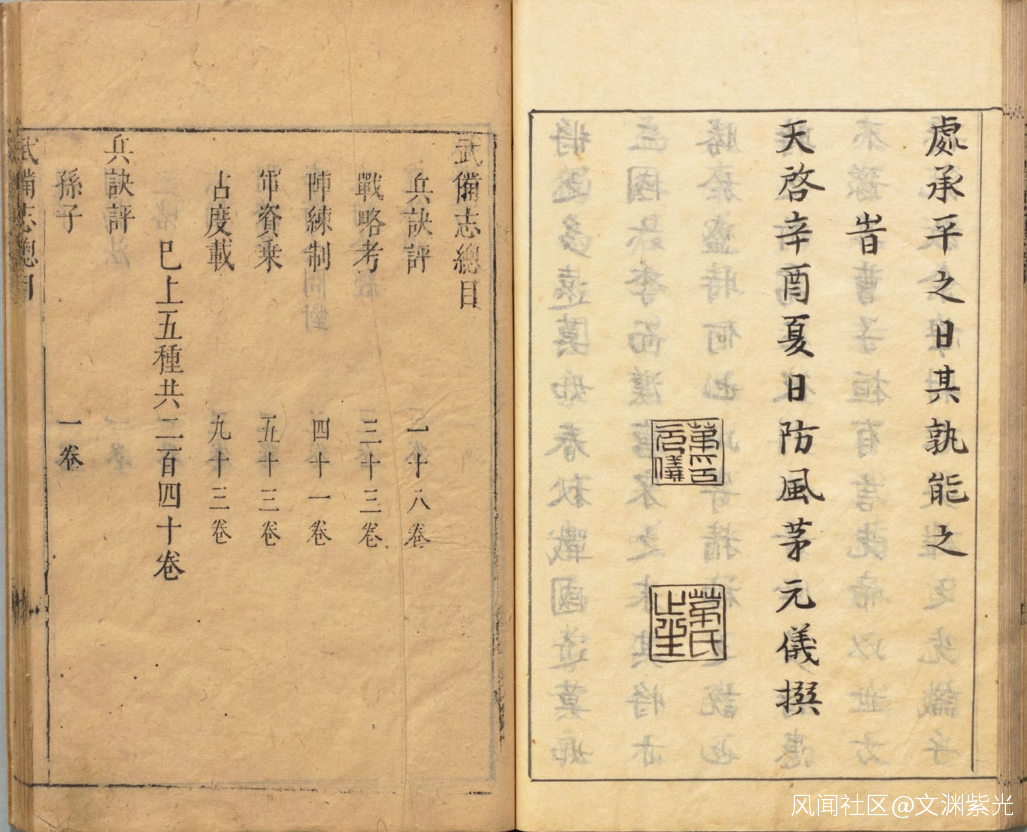 處承平之日其孰能之
旹
天啓辛酉夏日防風茅元儀撰
茅印元儀
茅氏止生
武備志總目
兵訣評 一十八卷
戰略考 三十三卷
陣練制 四十一卷
軍資乘 五十三卷
占度載 九十三卷
巳上五種共二百四十卷
兵訣評
孫子 一卷
武備志總目
风闻社区@文渊紫光